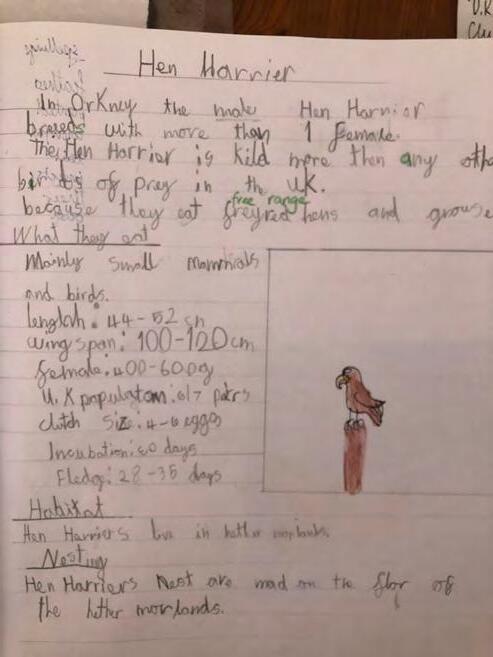 Hen Harrier
In Orkney the male Hen Harrier
breeds with more than 1 female.
The Hen Harrier is kild more then any othe
birds of prey in the U.K.
because they eat free range hens and grouse
What they eat
Mainly small mammals
and birds.
length: 44-52 cm
wing span: 100-120 cm
female: 400-600g
U.K populatom: 617 pairs
clutch size: 4-6 eggs
Incubation: 30 days
Fledge: 28-35 days
Habitat
Hen Harriers live in hether morlands.
Nesting
Hen Harriers Nest are mad on the flor of
the hether morlands.